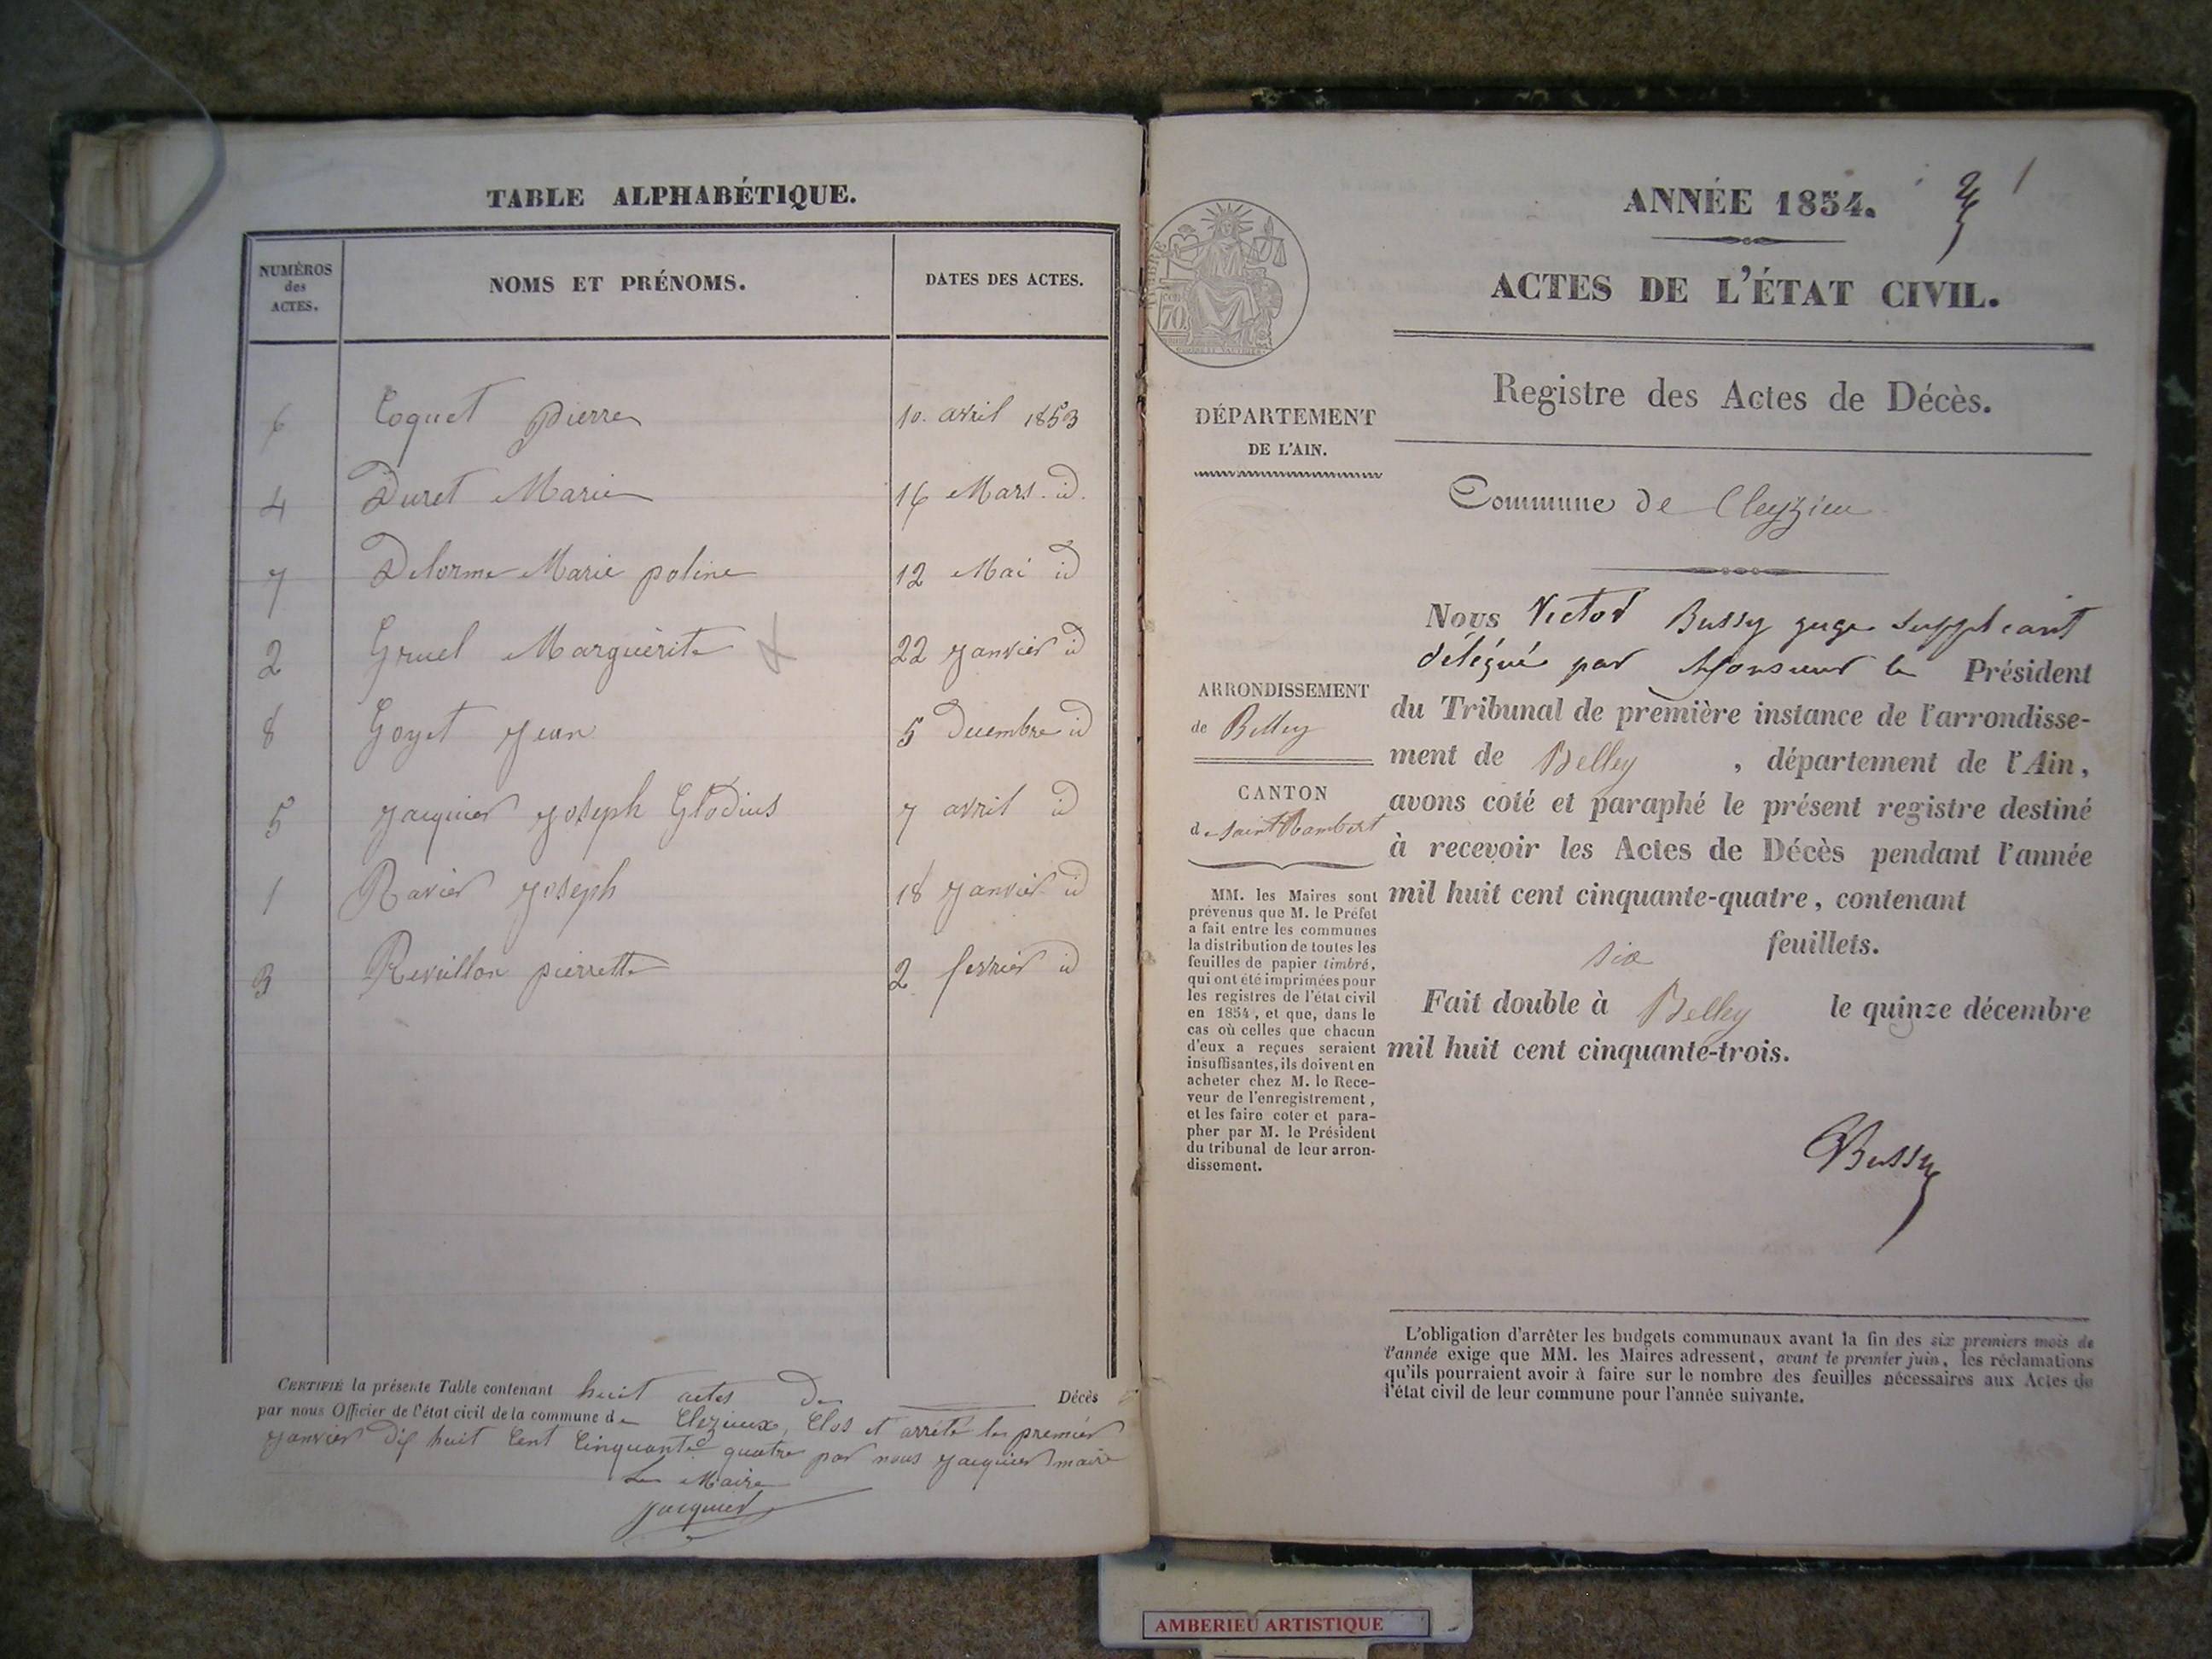 TABLE ALPHABÉTIQUE.
NUMÉROS
des
ACTES.
NOMS ET PRÉNOMS.
DATES DES ACTES.
6 Coquet pierre 10. avril 1853
4 Duret Marie 16 Mars. id.
7 Delorme Marie poline 12 Mai id
2 Gruel Marguérite 22 janvier id
8 Goyet jean 5 Decembre id
5 jacquier joseph Glodius 7 avril id
1 Ravier joseph 18 janvier id
3 Revillon pierrette 2 fevrier id
CERTIFIÉ la présente Table contenant huit actes de Décès
par nous Officier de l'état civil de la commune de Clezieux, Clos et arrété le premier
janvier dix huit Cent Cinquante quatre par nous jacquier maire
Le Maire
jacquier
ANNÉE 1854.
1
ACTES DE L'ÉTAT CIVIL.
70
Registre des Actes de Décès.
DÉPARTEMENT
DE L'AIN.
Commune de Cleyzieu
Nous Victor Bussy juge suppléant
délégué par Monsieur le Président
du Tribunal de première instance de l'arrondisse-
ment de Belley, département de l'Ain,
avons coté et paraphé le présent registre destiné
à recevoir les Actes de Décès pendant l'année
mil huit cent cinquante-quatre, contenant
six feuillets.
Fait double à Belley le quinze décembre
mil huit cent cinquante-trois.
Bussy
ARRONDISSEMENT
de Belley
CANTON
de Saint Rambert
MM. les Maires sont
prévenus que M. le Préfet
a fait entre les communes
la distribution de toutes les
feuilles de papier timbré,
qui ont été imprimées pour
les registres de l'état civil
en 1854, et que, dans le
cas où celles que chacun
d'eux a reçues seraient
insuffisantes, ils doivent en
acheter chez M. le Rece-
veur de l'enregistrement,
et les faire coter et para-
pher par M. le Président
du tribunal de leur arron-
dissement.
L'obligation d'arrêter les budgets communaux avant la fin des six premiers mois de
l'année exige que MM. les Maires adressent, avant le premier juin, les réclamations
qu'ils pourraient avoir à faire sur le nombre des feuilles nécessaires aux Actes de
l'état civil de leur commune pour l'année suivante.
AMBERIEU ARTISTIQUE